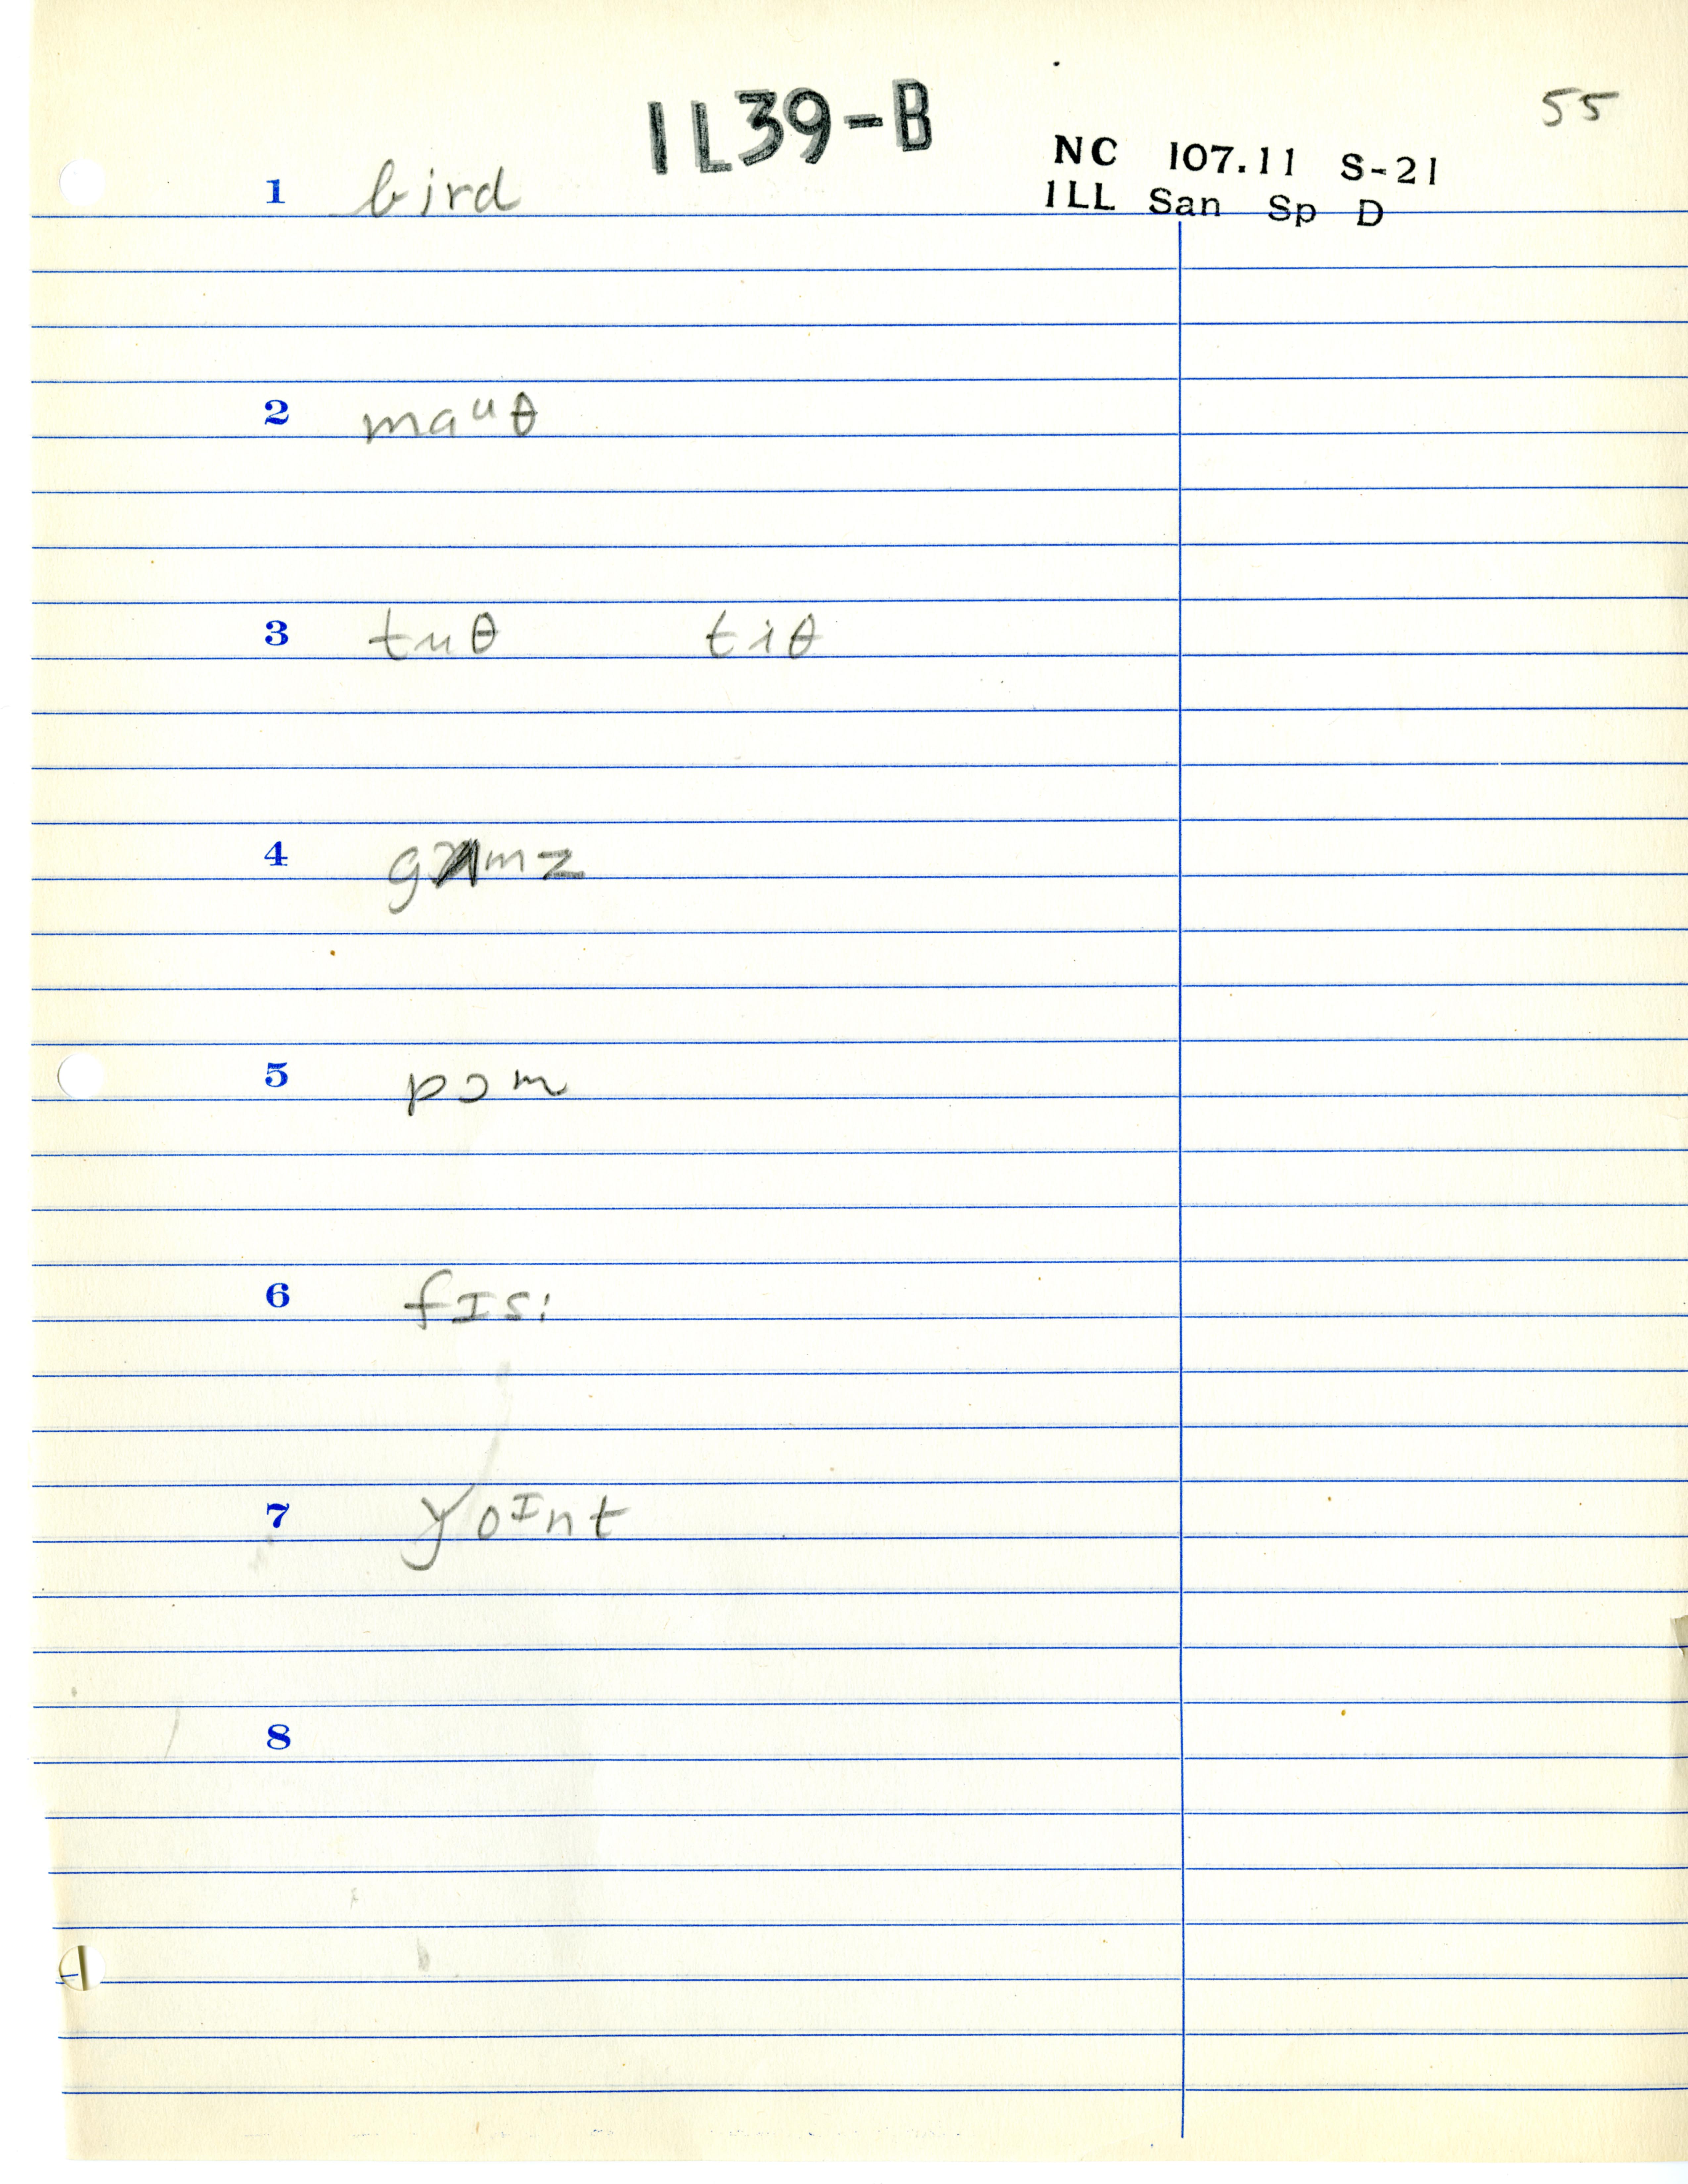 55
1L39-B
NC 107.11 S-21
1LL San Sp D
1 bird
2 maᵘθ
3 tuθ tiθ
4 gʌmz
5 pɔm
6 fɪsː
7 yoᴵnt
8